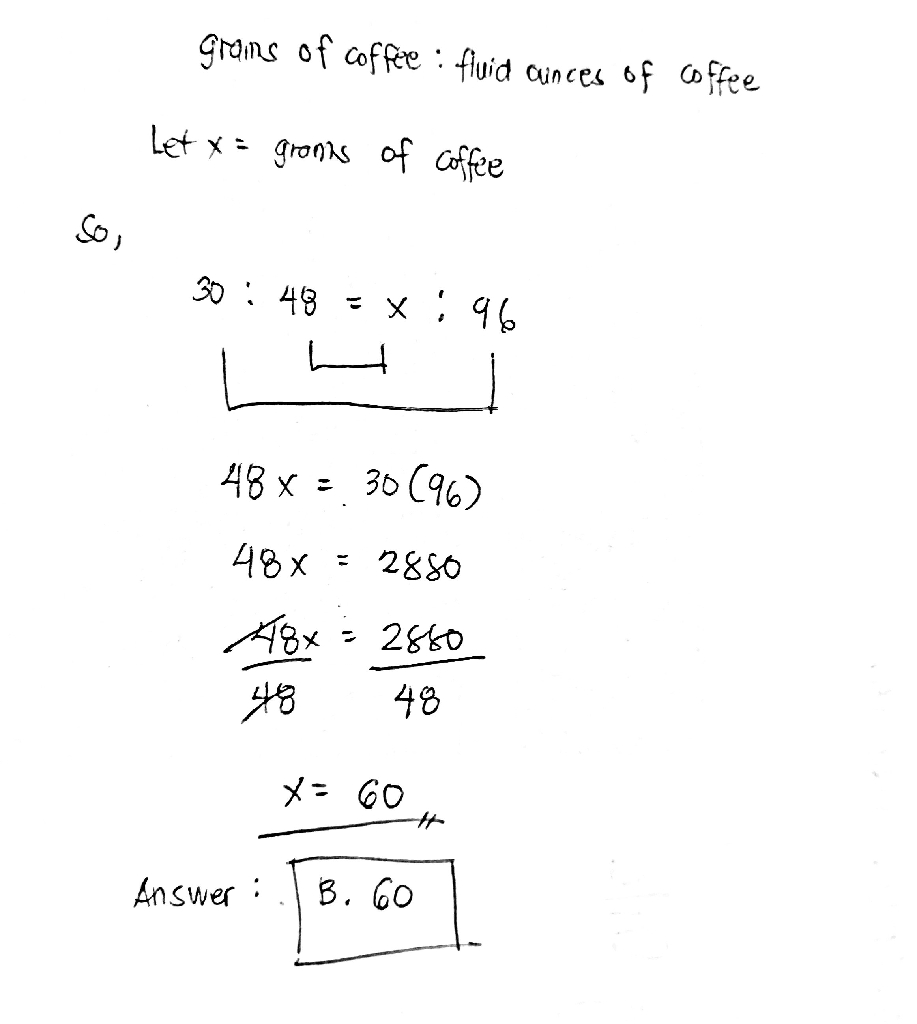 grams of coffee : fluid ounces of coffee
Let x = grams of coffee
So,
30 : 48 = x : 96
48 x = 30 (96)
48x = 2880
48x = 2880
48 48
x = 60
Answer : B. 60